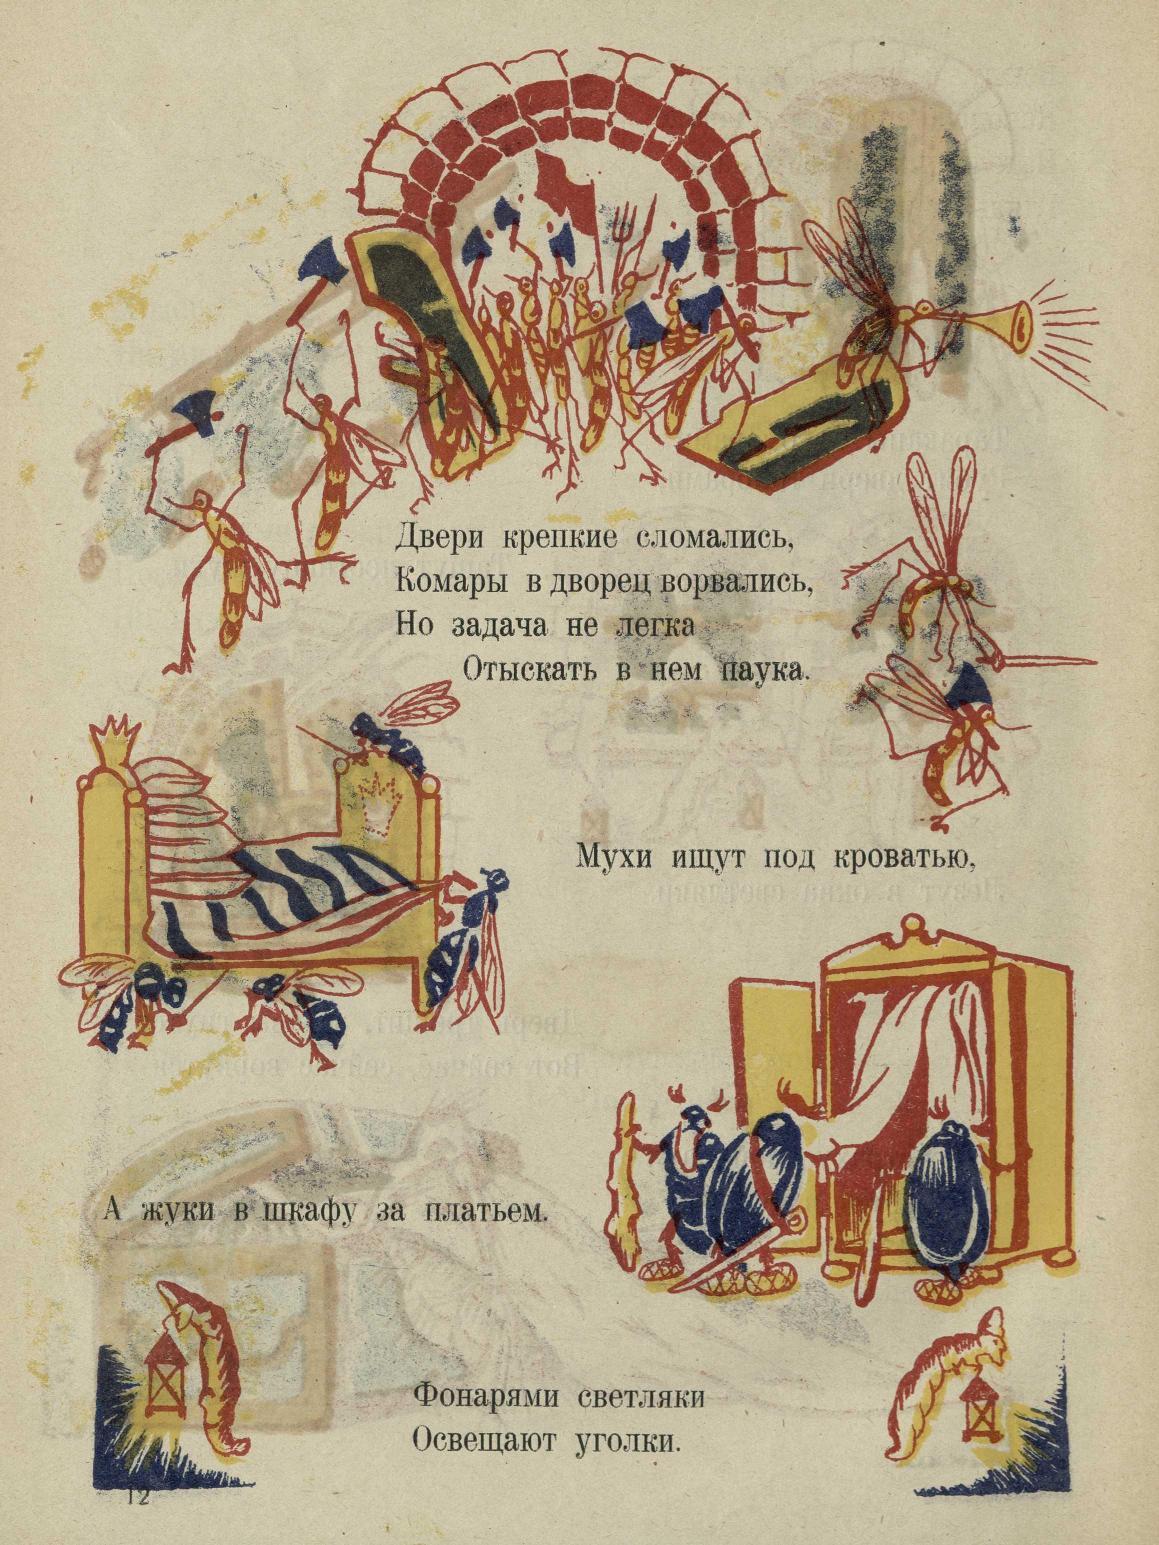 Двери крепкие сломались,
Комары в дворец ворвались,
Но задача не легка
Отыскать в нем паука.
Мухи ищут под кроватью,
А жуки в шкафу за платьем.
Фонарями светляки
Освещают уголки.
12